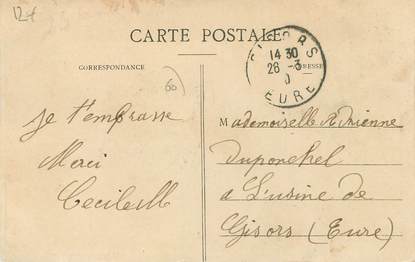 12+
CARTE POSTALE
GISORS
14 30
26 - 3
EURE
CORRESPONDANCE
ADRESSE
60
Je t'embrasse
Merci
Mademoiselle Adrienne
Duponchel
a L'usine de
Gisors (Eure)